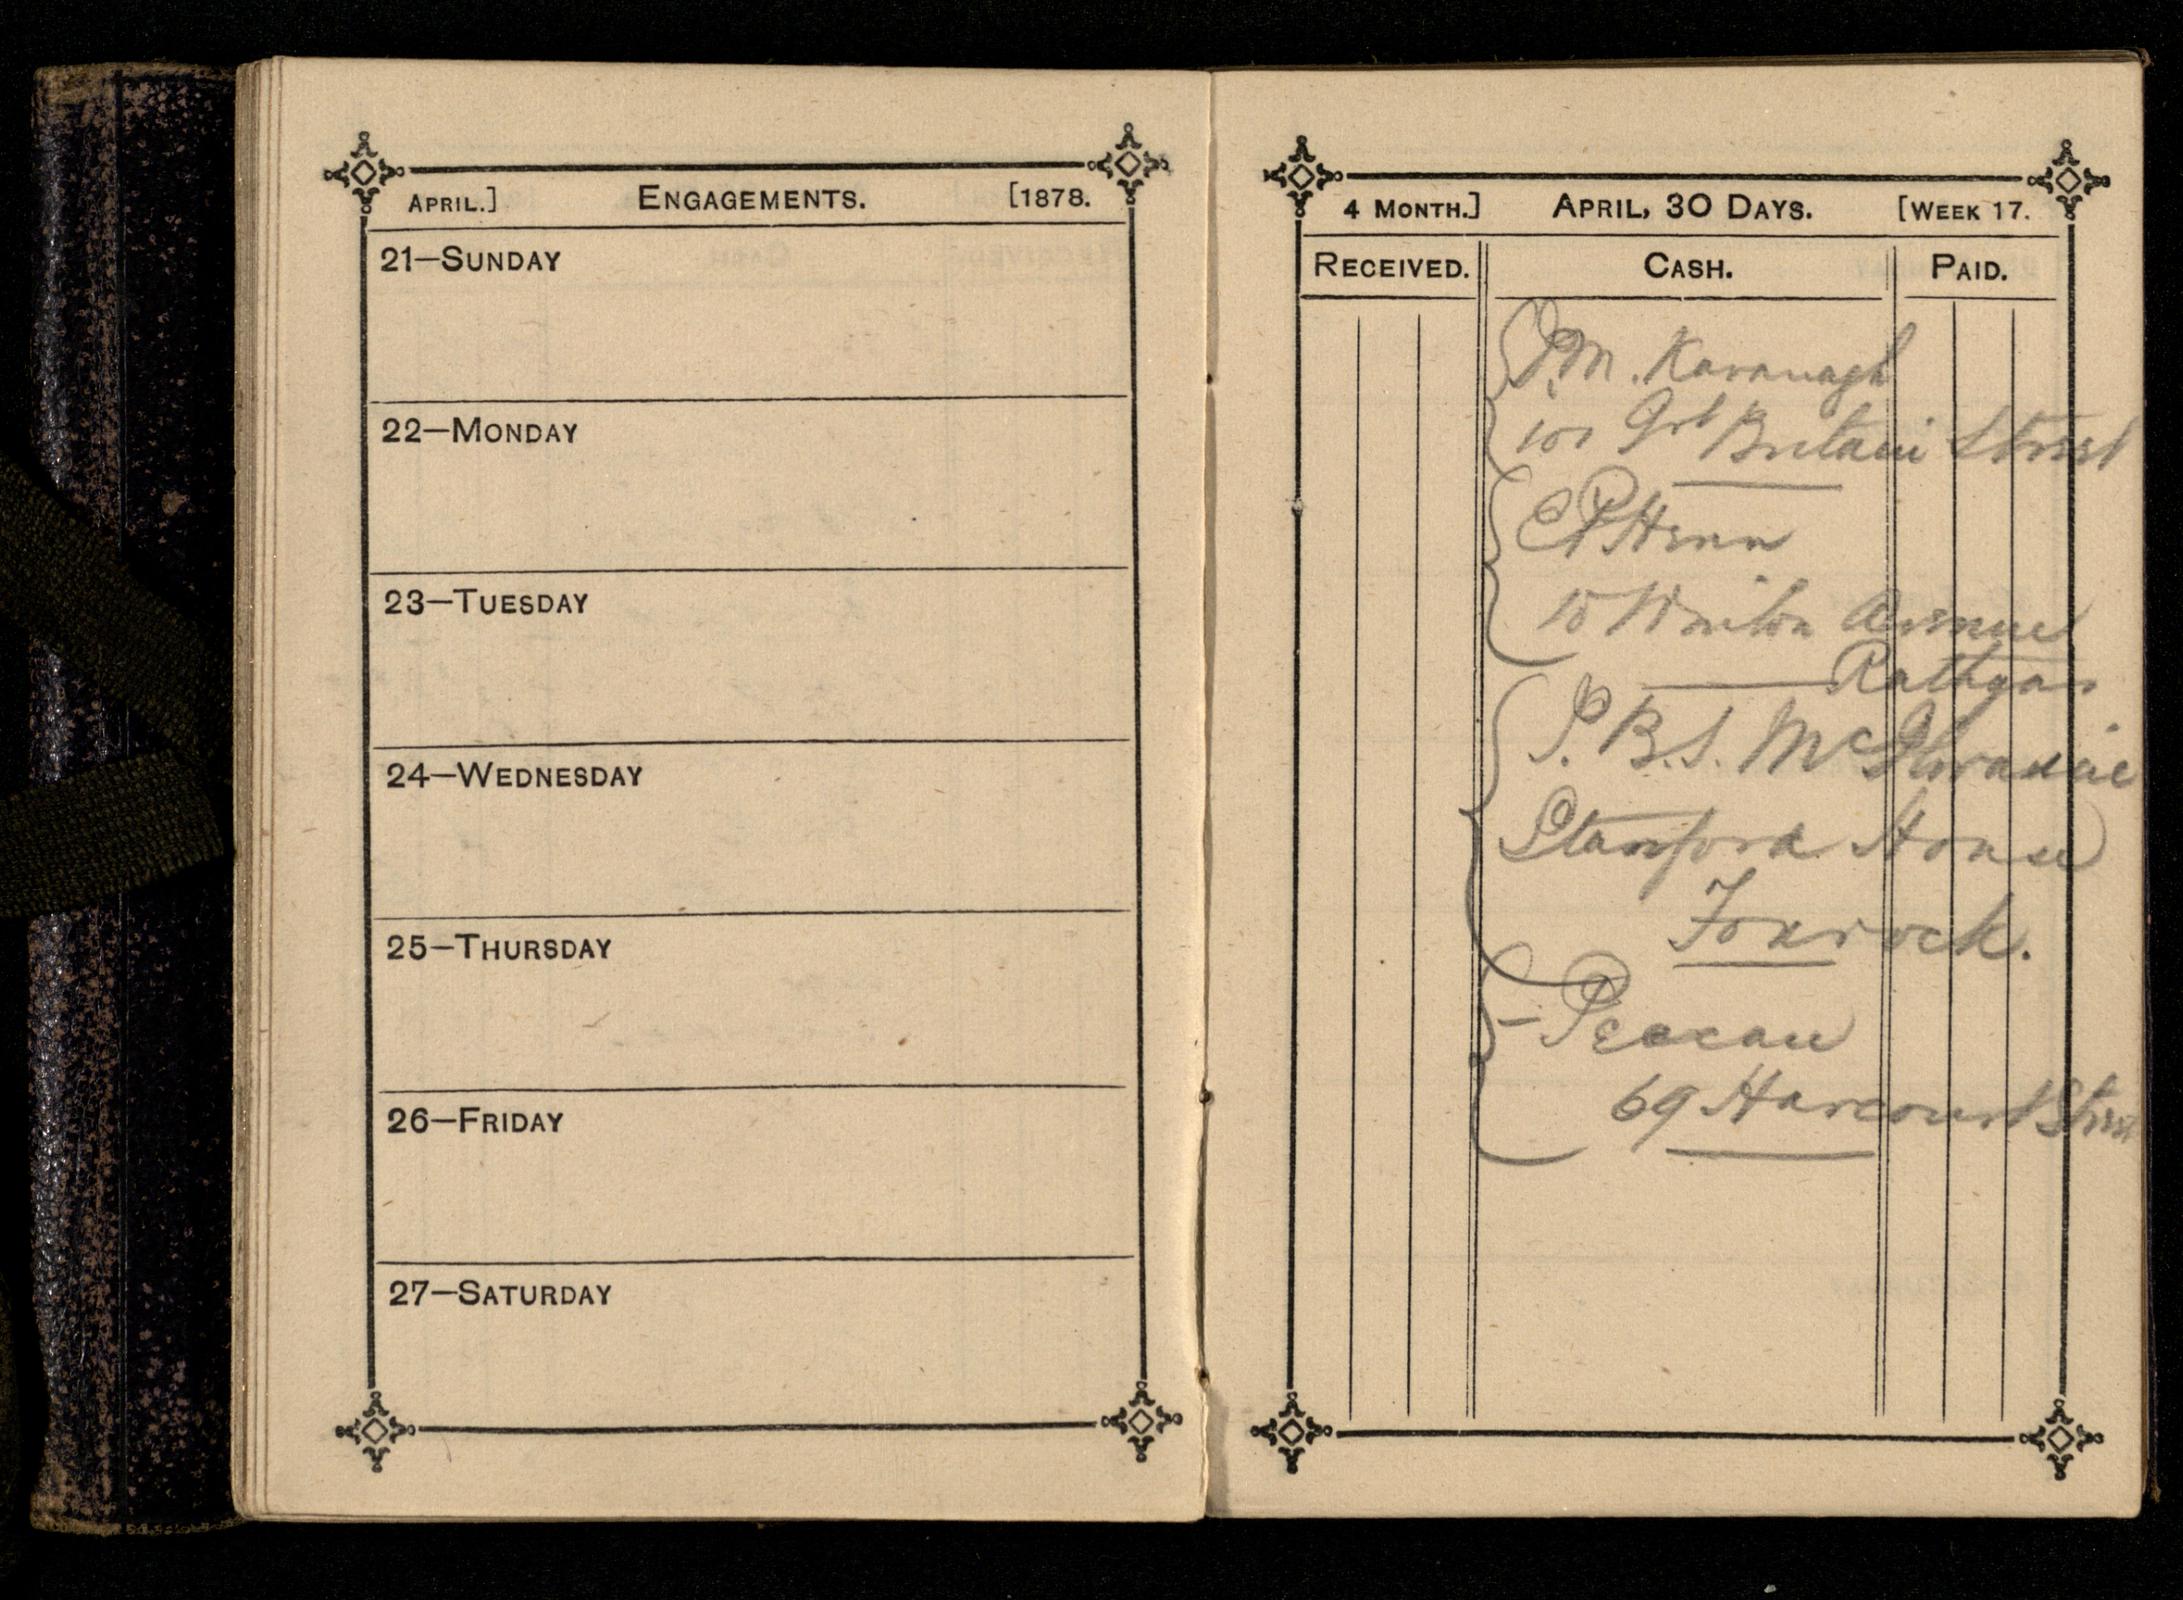 APRIL.] ENGAGEMENTS. [1878.
21—SUNDAY
22—MONDAY
23—TUESDAY
24—WEDNESDAY
25—THURSDAY
26—FRIDAY
27—SATURDAY
4 MONTH.] APRIL, 30 DAYS. [WEEK 17.
RECEIVED. CASH. PAID.
Kavanagh
101 Grt Britain Street
Henn
Avenue
Rathgar
House
Foxrock.
69 Harcourt Street